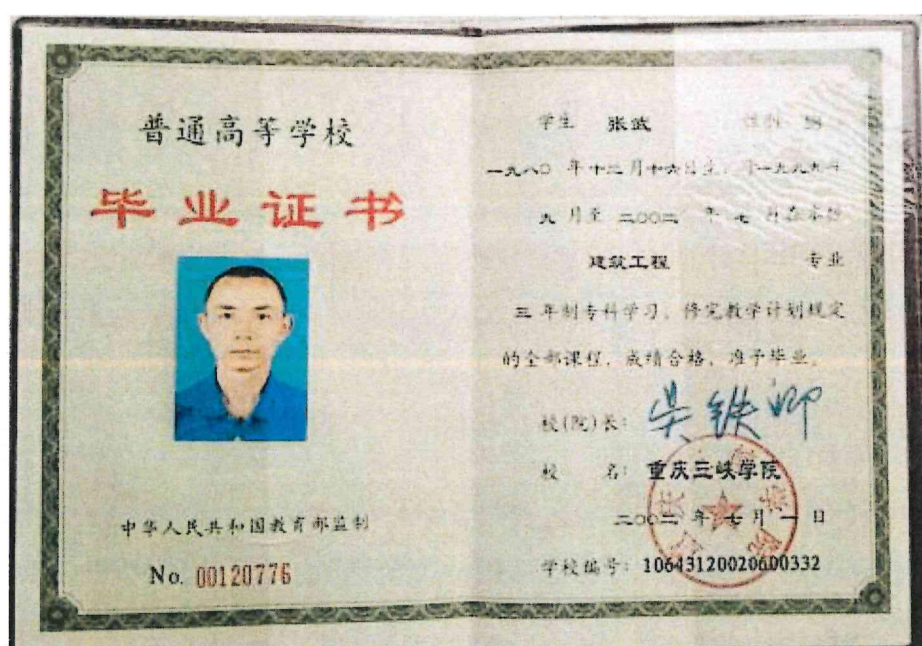 普通高等学校
毕业证书
中华人民共和国教育部监制
No. 00120776
学生 张武 性别
一九八〇 年十二月十六日生,于一九九九年
九 月至 二〇〇二 年 七 月在本校
建筑工程 专业
三 年制专科学习,修完教学计划规定
的全部课程,成绩合格,准予毕业。
校(院)长: 吴铁卿
校 名: 重庆三峡学院
二〇〇二 年 七 月 一 日
学校编号: 10643120020600332